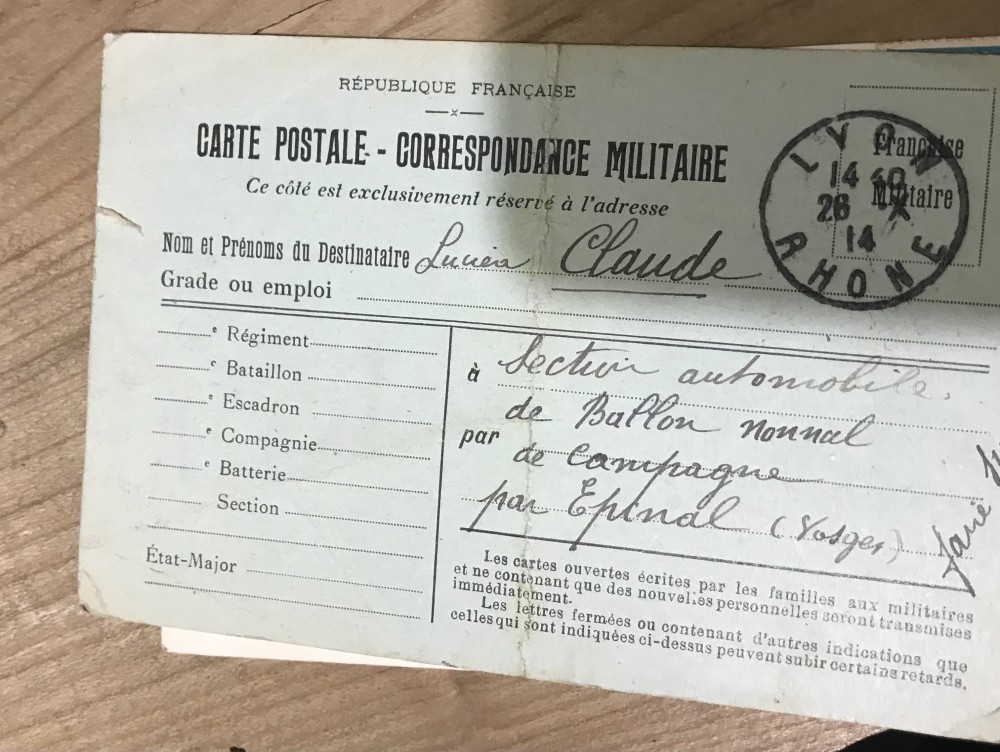 RÉPUBLIQUE FRANÇAISE
CARTE POSTALE - CORRESPONDANCE MILITAIRE
Ce côté est exclusivement réservé à l'adresse
Française
Militaire
LYON
14 40
26 X
14
RHONE
Nom et Prénoms du Destinataire Lucien Claude
Grade ou emploi
e Régiment
e Bataillon
e Escadron
e Compagnie
e Batterie
Section
État-Major
à Section automobile.
de Ballon nonnal
par de Campagne
par Epinal (Vosges)
Les cartes ouvertes écrites par les familles aux militaires
et ne contenant que des nouvelles personnelles seront transmises
immédiatement.
Les lettres fermées ou contenant d'autres indications que
celles qui sont indiquées ci-dessus peuvent subir certains retards.